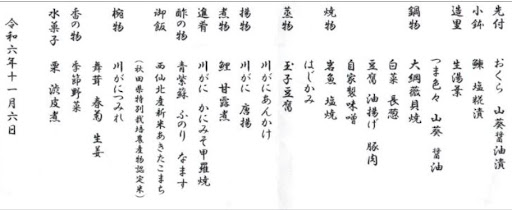 先付　おくら　山葵醤油漬
小鉢　鰊　塩糀漬
造里　生湯葉
つま色々　山葵　醤油
鍋物　大綱蕪貝焼
白菜　長葱
豆腐　油揚げ　豚肉
自家製味噌
焼物　岩魚　塩焼
はじかみ
蒸物　玉子豆腐
川がにあんかけ
揚物　川がに　唐揚
煮物　鯉　甘露煮
進肴　川がに　かにみそ甲羅焼
酢の物　青紫蘇　ふのり　なます
御飯　西仙北産新米あきたこまち
（秋田県特別栽培農産物認定米）
椀物　川がにつみれ
舞茸　春菊　生姜
香の物　季節野菜
水菓子　栗　渋皮煮
令和六年十一月六日